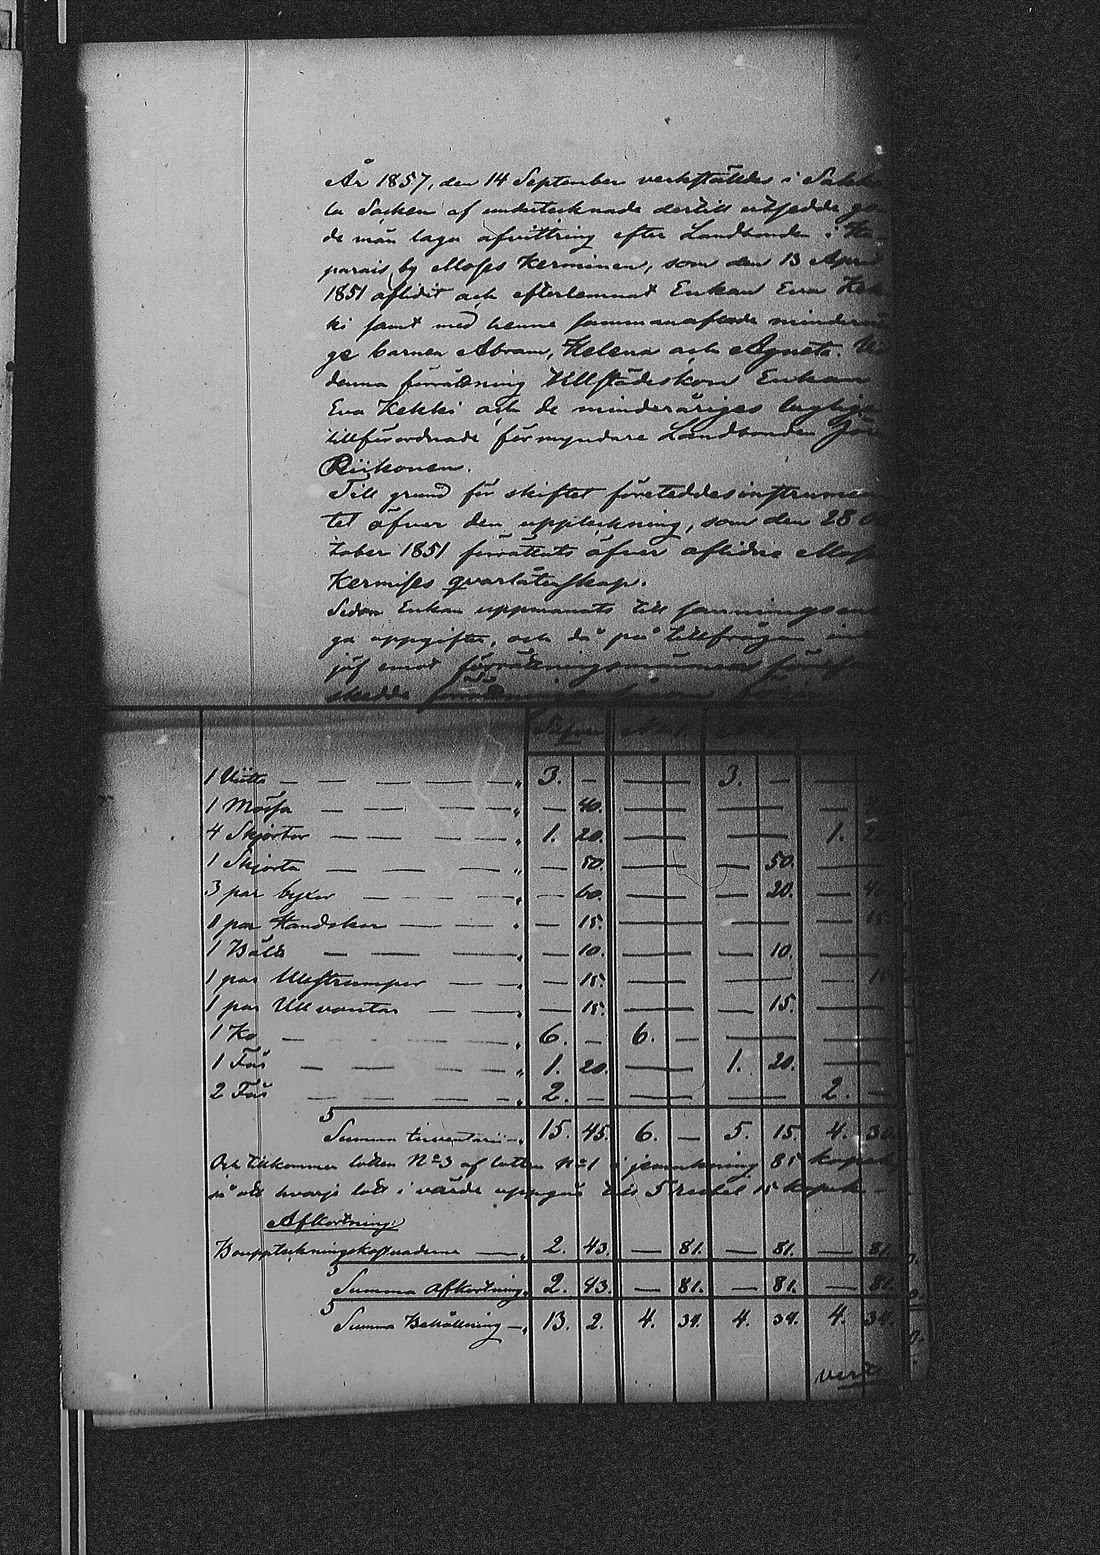 År 1857, den 14 September verkställdes i Sakku
la Socken af undertecknade dertill utsedde go
de män laga afvittring efter Landbonden i
parais by Moses Kerminen, som den 13 April
1851 aflidit och efterlemnat Enkan Eva Kek
ki samt med henne sammanaflade minderåri
ge barnen Abram, Helena och Agneta. Vid
denna förrättning tillstädeskom Enkan
Eva Kekki och de minderåriges lagligen
tillförordnade förmyndare Landbonden
Riikonen.
Till grund för skiftet företeddes instrumen
tet öfver den uppteckning, som den 28 Oc
tober 1851 förrättats öfver aflidne Moses
Kermises qvarlåtenskap.
Sedan Enkan uppmanats till sanningsenli
ga uppgifter, och då på tillfrågan intet
jäf emot förrättningsmännen
skedde förrättningen såsom följer
1 Viitta — — — — „ 3. — — 3. — —
1 Mössa — — — — „ — 40. — —
4 Skjortor — — — „ 1. 20. — — 1. 20
1 Skjorta — — — „ — 50. — — 50. —
3 par byxor — — — „ — 60. — — 20. — 40.
1 par Handskor — — — „ — 15. — — — 15.
1 Bälte — — — — „ — 10. — — 10. —
1 par Ullstrumpor — — „ — 15. — — — 15
1 par Ullvantar — — „ — 15. — — 15. —
1 Ko — — — — „ 6. — 6. — — —
1 Får — — — — „ 1. 20. — 1. 20. —
2 Får — — — — „ 2. — — — 2. —
Summa Inventarii — „ 15. 45. 6. — 5. 15. 4. 30.
Och tillkommer lotten No 3 af lotten No 1 i jemnkning 85 kopek
så att hvarje lott i värde uppgår till 5 rubel 15 kopek. —
Afkortning:
Bouppteckningskostnaderne — „ 2. 43. — 81. — 81. — 81.
Summa Afkortning „ 2. 43. — 81. — 81. — 81.
Summa Behållning — „ 13. 2. 4. 34. 4. 34. 4. 34.
vert